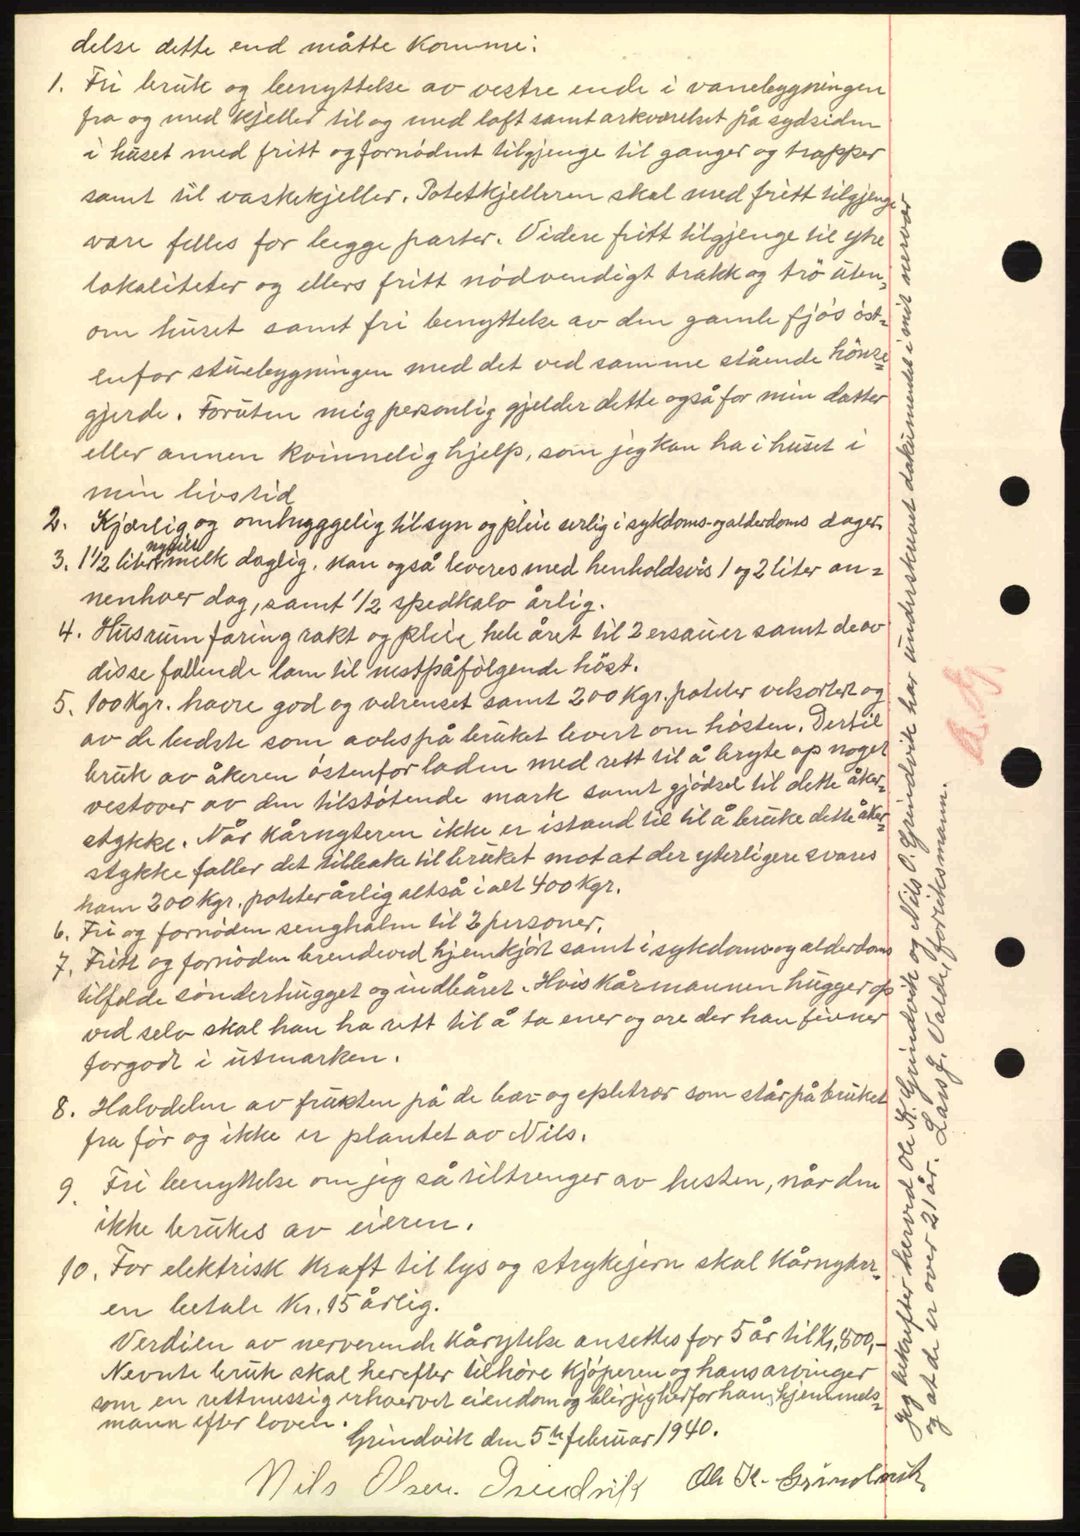 delse dette end måtte komme:
1. Fri bruk og benyttelse av vestre ende i vånebygningen
fra og med kjeller til og med loft samt arkværelset på sydsiden
i huset med fritt og fornödent tilgjenge til ganger og trapper
samt til vaskekjeller. Potetkjelleren skal med fritt tilgjenge
være felles for begge parter. Videre fritt tilgjenge til ytre
lokaliteter og ellers fritt nödvendigt trakk og trö uten-
om huset samt fri benyttelse av den gamle fjös öst-
enfor stuebygningen med det ved samme stående hönse-
gjerde. Foruten mig personlig gjelder dette også for min datter
eller annen kvinnelig hjelp, som jeg kan ha i huset i
min livstid
2. Kjærlig og omhyggelig tilsyn og pleie serlig i sykdoms- og alderdoms dager.
3. 1 1/2 liter nysilt melk daglig, kan også leveres med henholdsvis 1 og 2 liter an-
nenhver dag, samt 1/2 spedkalv årlig.
4. Husrum foring røkt og pleie hele året til 2 ersauer samt de av
disse fallende lam til nestpåfölgende höst.
5. 100 kgr. havre god og velrenset samt 200 kgr. poteter velsortert og
av de bedste som avles på bruket levert om hösten. Dertil
bruk av åkeren östenfor laden med rett til å bryte op noget
vestover av den tilstötende mark samt gjödsel til dette åker-
stykke. Når kårnyteren ikke er istand til til å bruke dette åker-
stykke faller det tilbake til bruket mot at der yterligere svares
ham 200 kgr. poteter årlig altså i alt 400 kgr.
6. Fri og fornöden senghalm til 2 personer.
7. Fritt og fornöden brendeved hjemkjört samt i sykdoms- og alderdoms
tilfelde sönderhugget og indbåret. Hvis kårmannen hugger op
ved selv skal han ha rett til å ta ener og ore der han finner
forgodt i utmarken.
8. Halvdelen av frukten på de bær- og epletrær som står på bruket
fra för og ikke er plantet av Nils.
9. Fri benyttelse om jeg så tiltrenger av hesten, når den
ikke brukes av eieren.
10. For elektrisk kraft til lys og strykejern skal kårnyter-
en betale kr. 15 årlig.
Verdien av nerverende kårytelse ansettes for 5 år til kr. 800,-
Nevnte bruk skal herefter tilhöre kjöperen og hans arvinger
som en rettmessig erhvervet eiendom og blir jeg herfor hans hjemmels-
mann efter loven.
Grindvik den 5te februar 1940.
Nils Olsen Grindvik Ole K. Grindvik
Jeg bekrefter herved Ole K. Grindvik og Nils O. Grindvik har underskrevet dokumentet i mit nervær
og at de er over 21 år. Lars J. Valde, forliksmann.